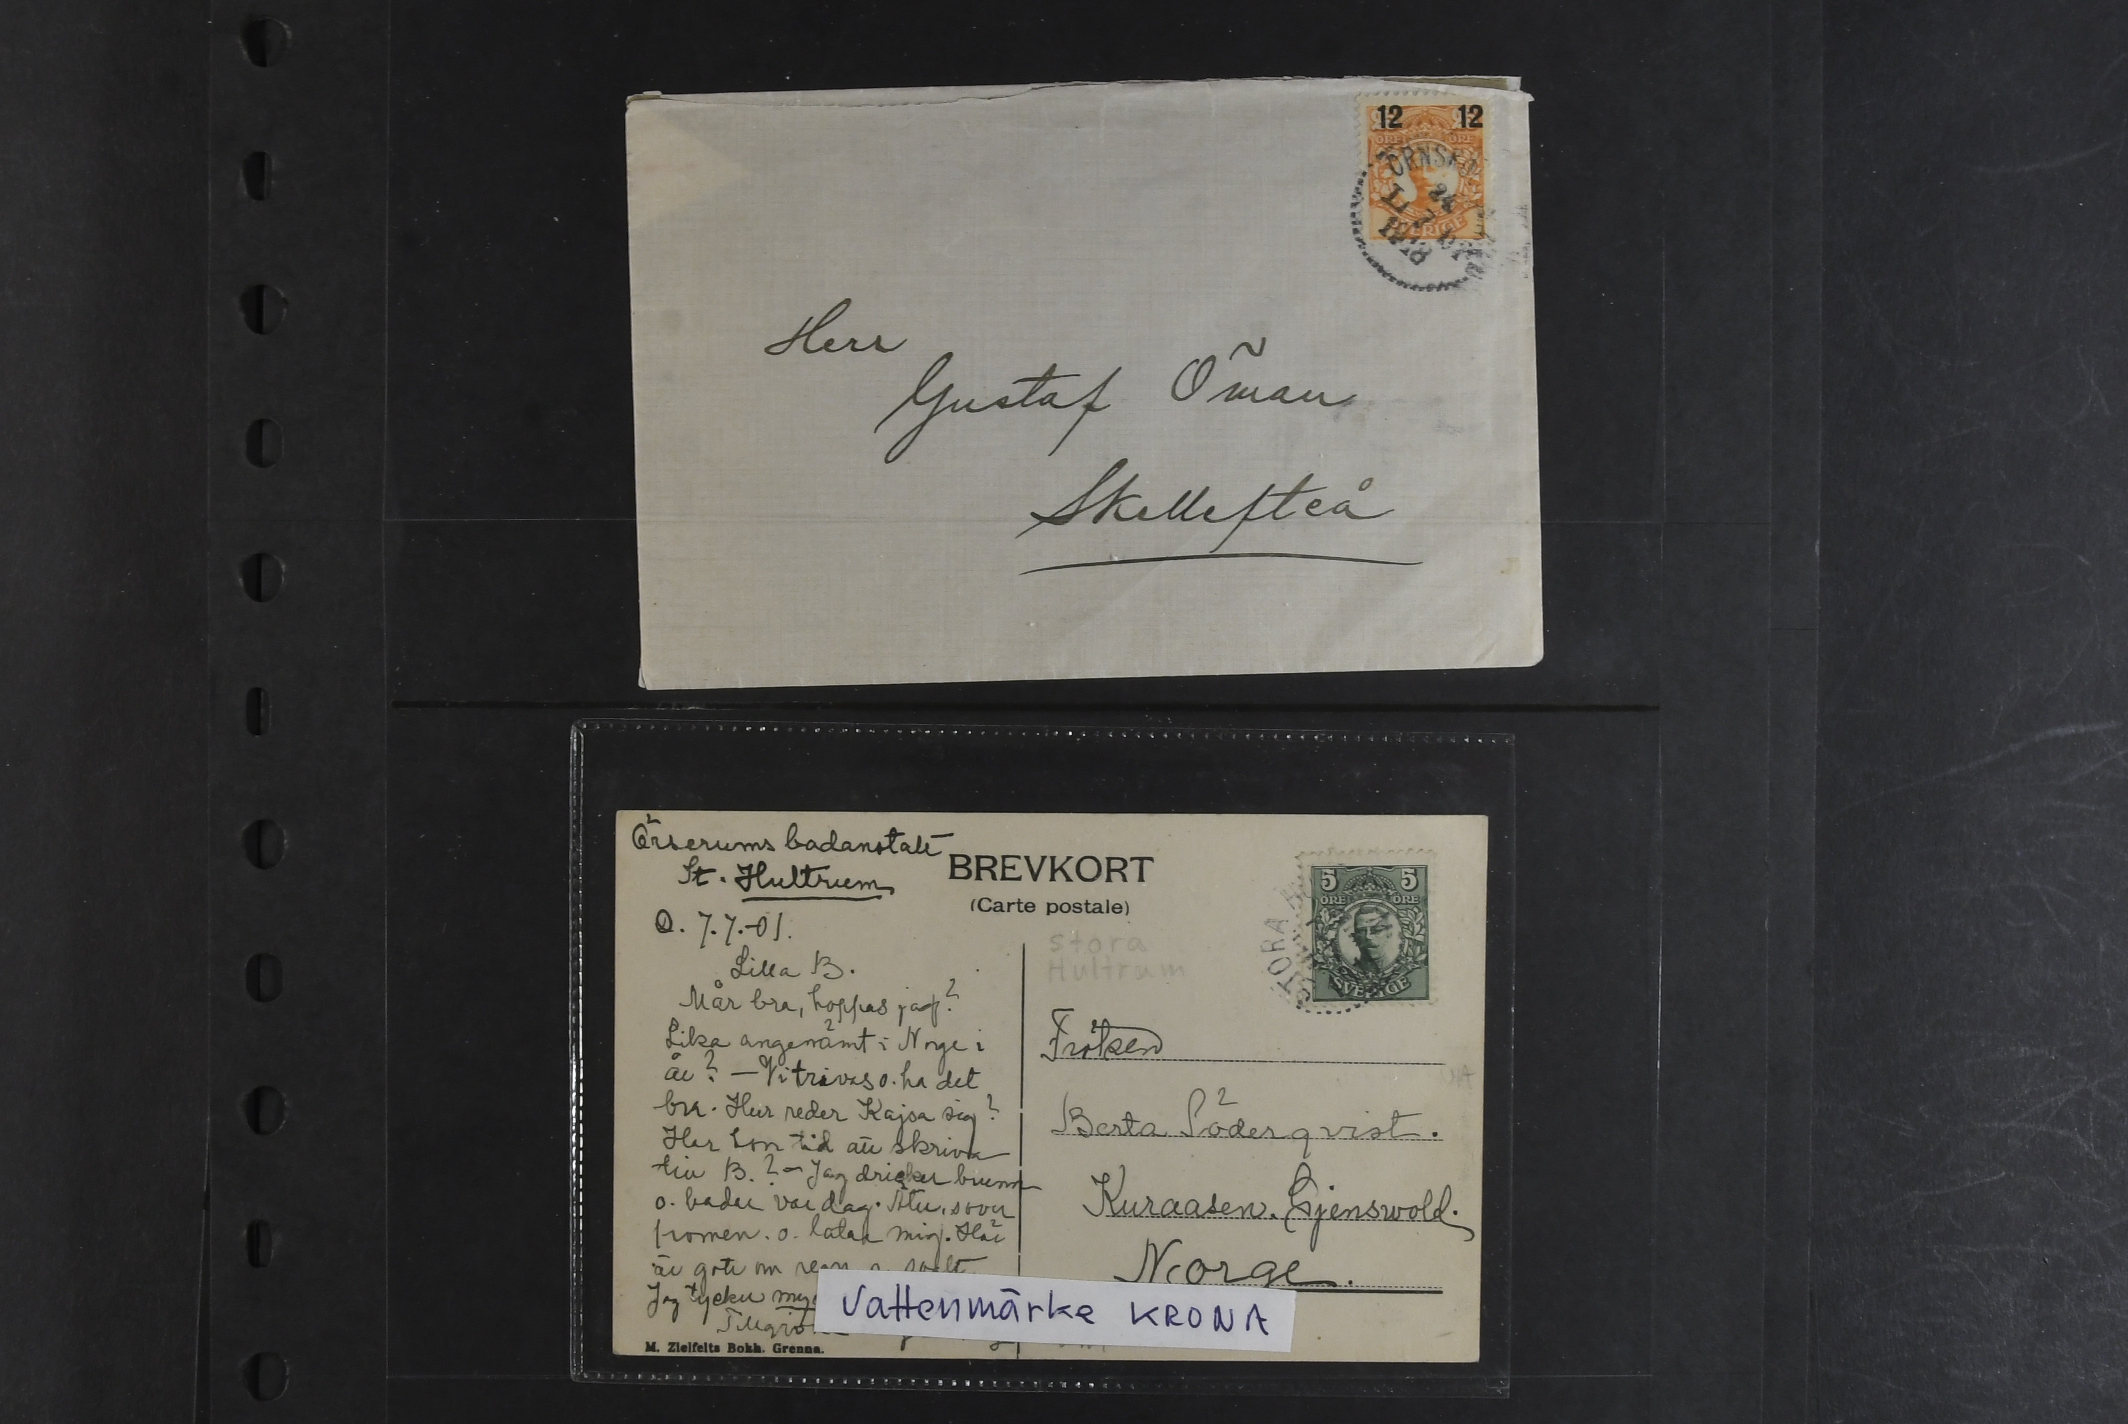 12 12
ÖRE ÖRE
ÖRNSK
24
7
1918
SVERIGE
Herr
Gustaf Öman
Skellefteå
Örserums badanstalt
St. Hultrum
D. 7.7.-01.
Lilla B.
Mår bra, hoppas jag?
Lika angenämt i Norge i
år? — Vi trivas o. ha det
bra. Hur reder Kajsa sig?
Har hon tid att skriva
till B.? – Jag dricker brunn
o. badar var dag. Äter, sover
promen. o. latar mig. Här
är gott om regn
Jag tycker
M. Zielfelts Bokh. Grenna.
BREVKORT
(Carte postale)
stora
Hultrum
5 5
ÖRE ÖRE
STORA
SVERIGE
Fröken
Berta Söderqvist.
Kuraasen. Gjenswold.
Norge.
Vattenmärke KRONA